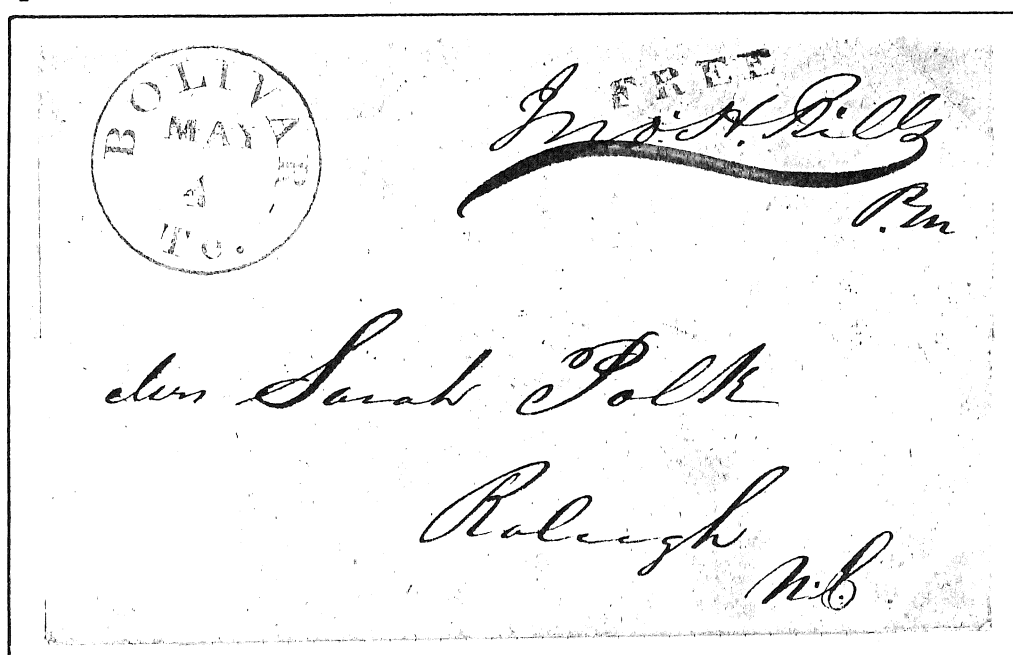 BOLIVAR
MAY
2
Te.
FREE
Jno. H. Bills
P.M
Mrs Sarah Polk
Raleigh
N.C.